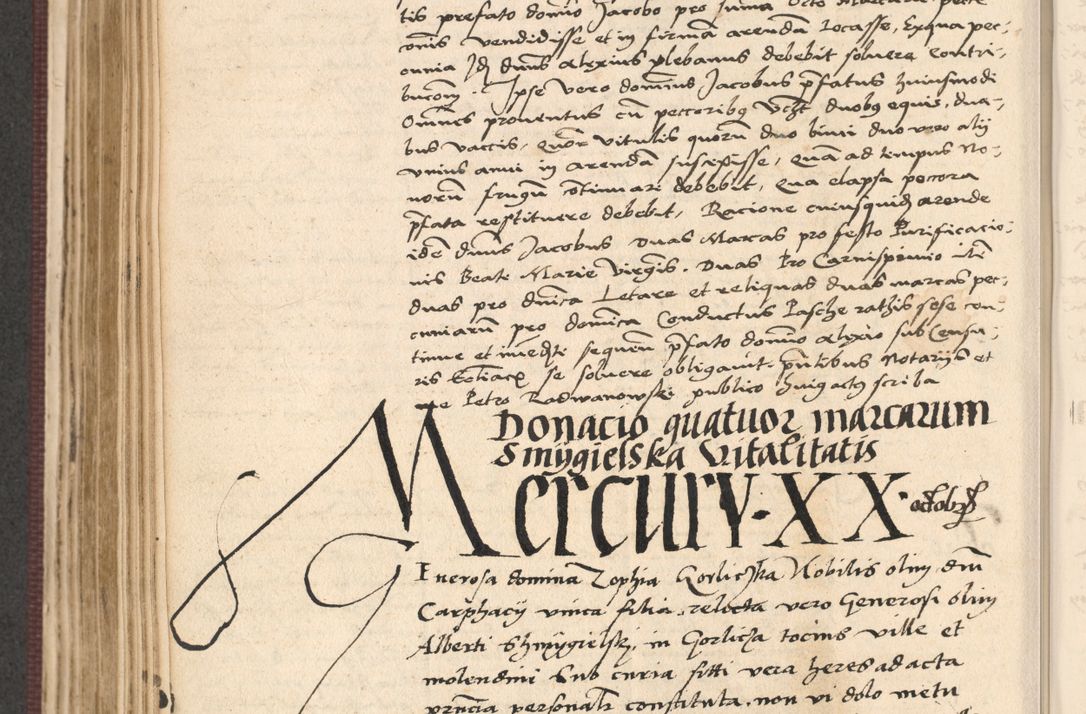 tis prefato domino Jacobo pro summa octo marcarum pecu
onis vendidisse et in firmam arendam Locasse, Exqua pec:
cunia Jdem dnus Alexius plebanus debebit soluere Contri:
bucionem. Ipse vero dominus Jacobus pfatus huiusmodi
Omnes prouentus cum peccoribus vcht duobus equis, dua:
bus vaccis, quatuor vitulis quorum duo bimi duo vero alij
vnius anni in arendam suscepisse, Quam ad tempus No:
uorum frugum continuari debebit, qua elapsa peccora
pfata restituere debebit, Racione cuiusquidem arende
idem dnus Jacobus duas Marcas pro festo Purificacio:
nis Beate Marie Virginis. Duas Pro Carnispriuio item
duas pro dnica Letare et reliquas duas marcas pec:
cuniarum pro dominica Conductus Pasche rathis sese con:
tinue et immediate sequen pfato domino Alexio sub Censu:
ris Ecclesiasticis se soluere obligauit. pntibus Notarijs et
me Petro Radwanowski publico huius actus scriba
Donacio quatuor marcarum
Smÿgielska Vitalitatis
Mercury · XX · octobris
Generosa domina Zophia Gorliczka Nobilis olim dni
Carphacij vnica filia, relicta vero Generosi olim
Alberti Shmÿgielskj, in Gorlicza tocius ville et
molendini Sub curia sitti vera heres ad acta
pncia personaliter constituta, non vi dolo metu